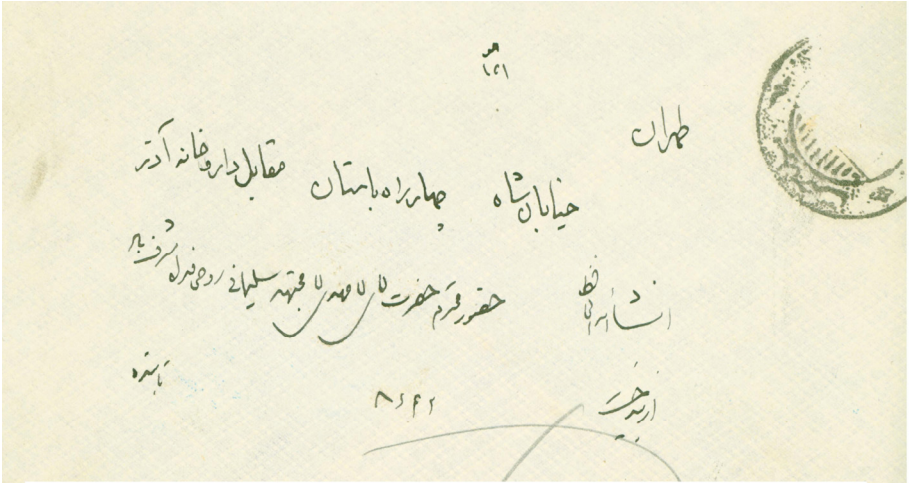 هو
۱۲۱
طهران
خیابان شاه چهارراه باستان مقابل داروخانه آذر
انشاءالله
حضور محترم حضرت آقای آقا مهدی آقا مجتهد سلیمانی روحی فداه مشرف باد
از بیدخت